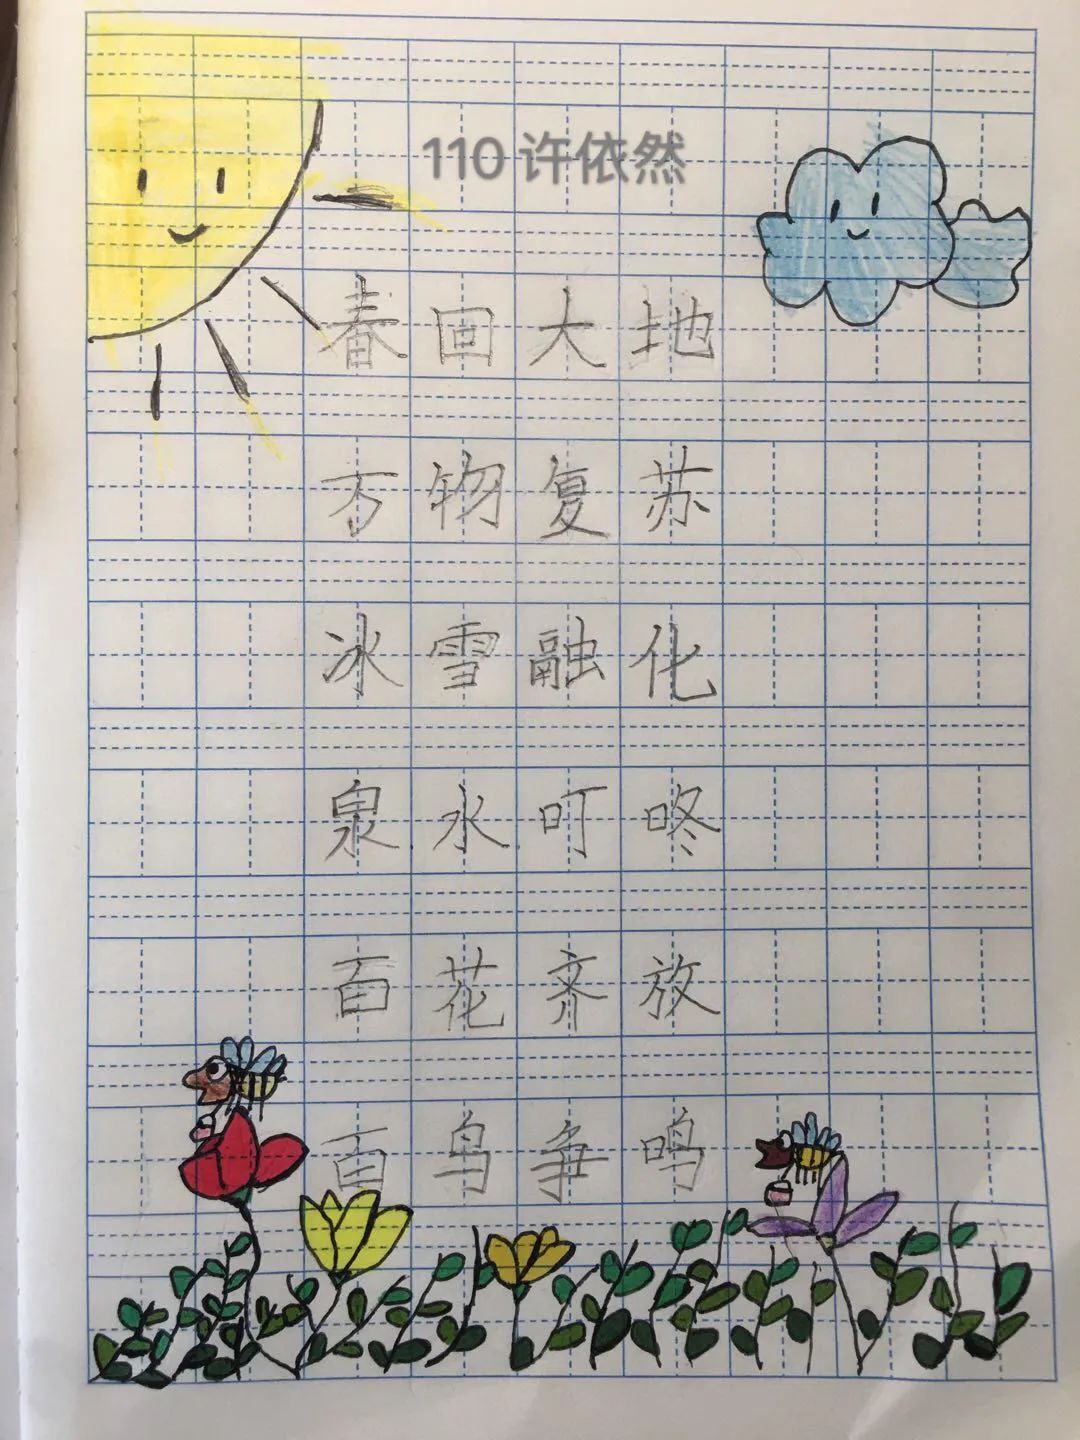 110 许依然
春回大地
万物复苏
冰雪融化
泉水叮咚
百花齐放
百鸟争鸣